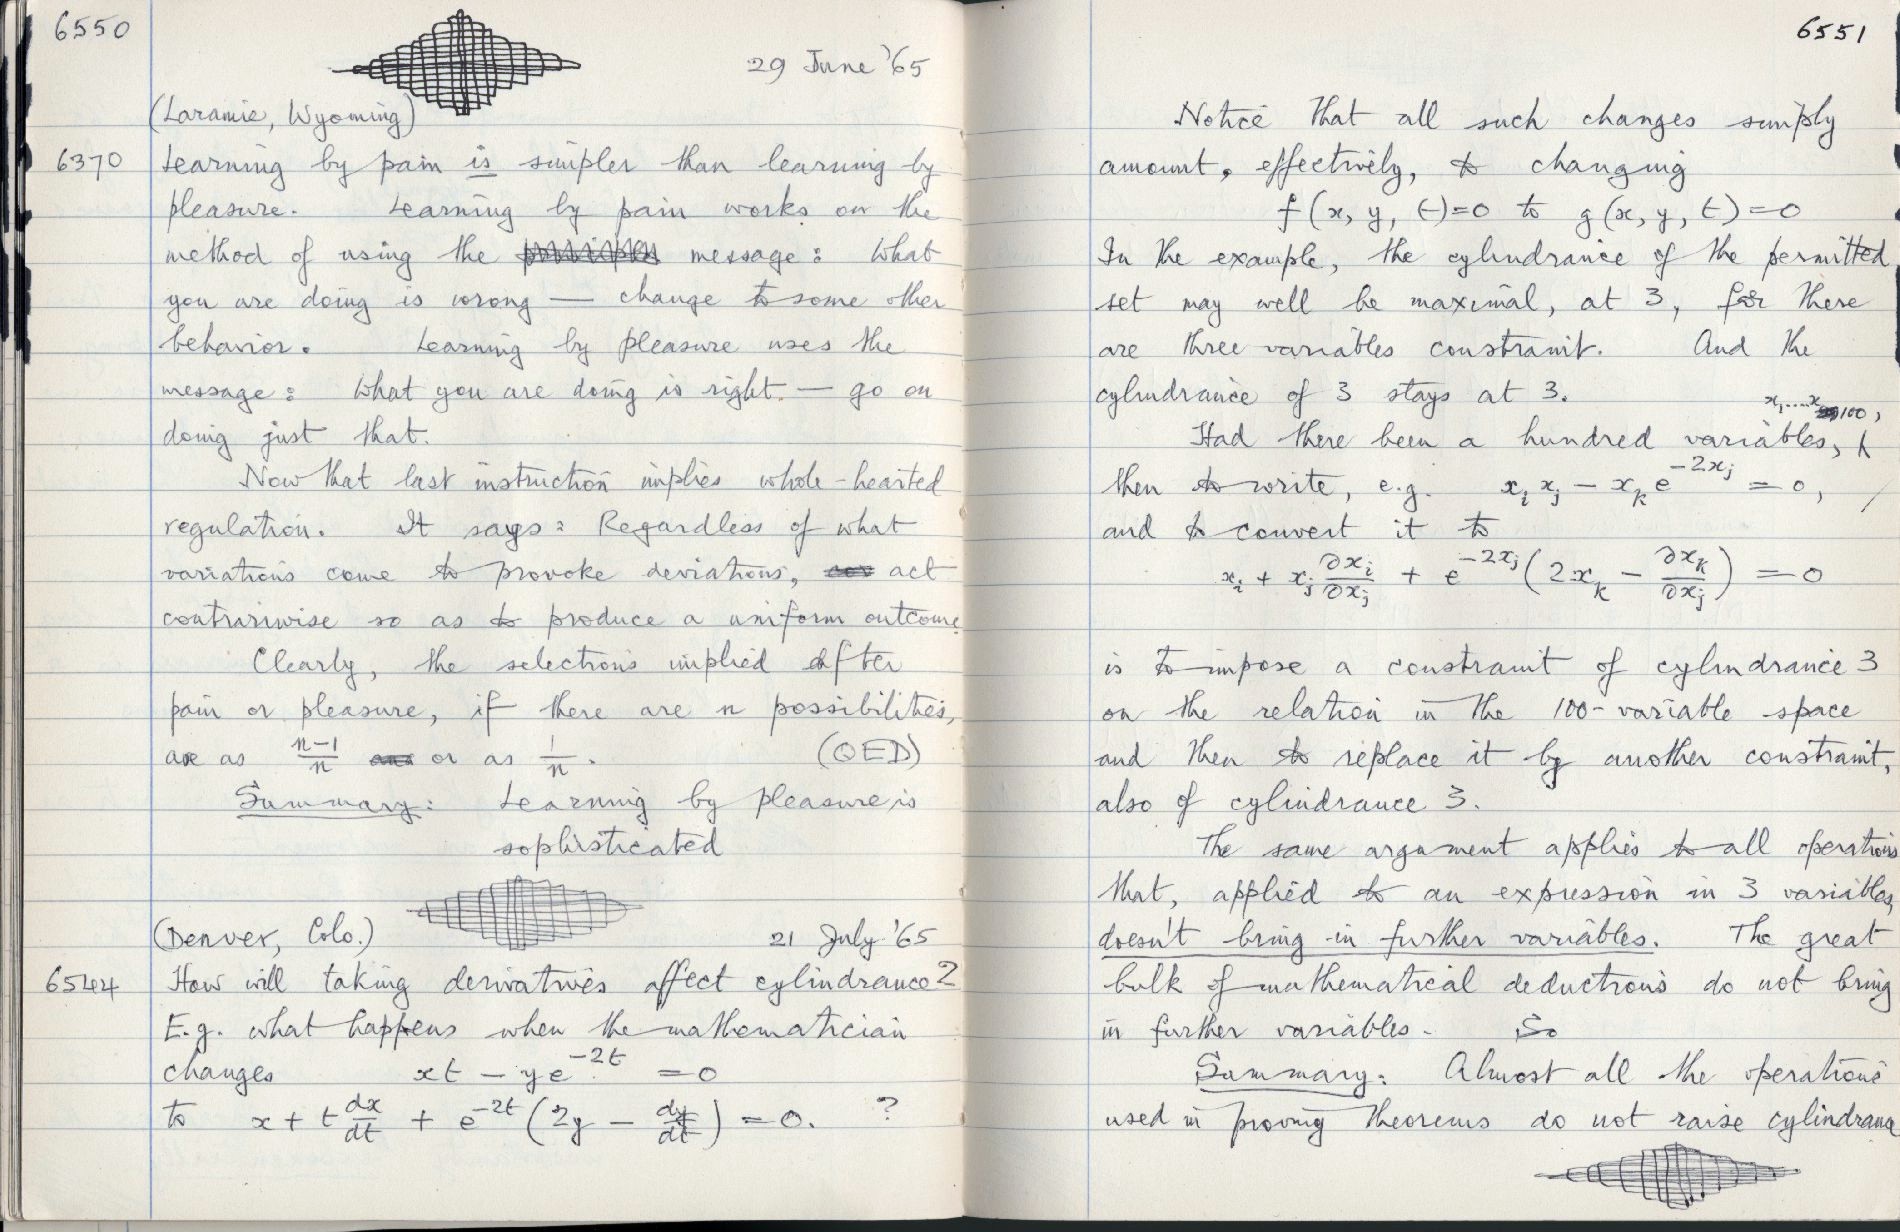 6550
29 June '65
(Laramie, Wyoming)
6370 Learning by pain is simpler than learning by
pleasure. Learning by pain works on the
method of using the message: What
you are doing is wrong — change to some other
behavior. Learning by pleasure uses the
message: What you are doing is right — go on
doing just that.
Now that last instruction implies whole-hearted
regulation. It says: Regardless of what
variations come to provoke deviations, act
contrariwise so as to produce a uniform outcome
Clearly, the selections implied after
pain or pleasure, if there are n possibilities,
are as n-1/n or as 1/n. (QED)
Summary: Learning by pleasure is
sophisticated
(Denver, Colo.) 21 July '65
6544 How will taking derivatives affect cylindrance?
E.g. what happens when the mathematician
changes xt - ye^-2t = 0
to x + t dx/dt + e^-2t (2y - dy/dt) = 0. ?
6551
Notice that all such changes simply
amount, effectively, to changing
f(x, y, t)=0 to g(x, y, t)=0
In the example, the cylindrance of the permitted
set may well be maximal, at 3, for there
are three variables constraint. And the
cylindrance of 3 stays at 3.
Had there been a hundred variables, x₁....x100,
then to write, e.g. xᵢxⱼ - xₖe^-2xⱼ = 0,
and to convert it to
xᵢ + xⱼ ∂xᵢ/∂xⱼ + e^-2xⱼ (2xₖ - ∂xₖ/∂xⱼ) = 0
is to impose a constraint of cylindrance 3
on the relation in the 100-variable space
and then to replace it by another constraint,
also of cylindrance 3.
The same argument applies to all operations
that, applied to an expression in 3 variables,
doesn't bring in further variables. The great
bulk of mathematical deductions do not bring
in further variables. So
Summary: Almost all the operations
used in proving theorems do not raise cylindrance